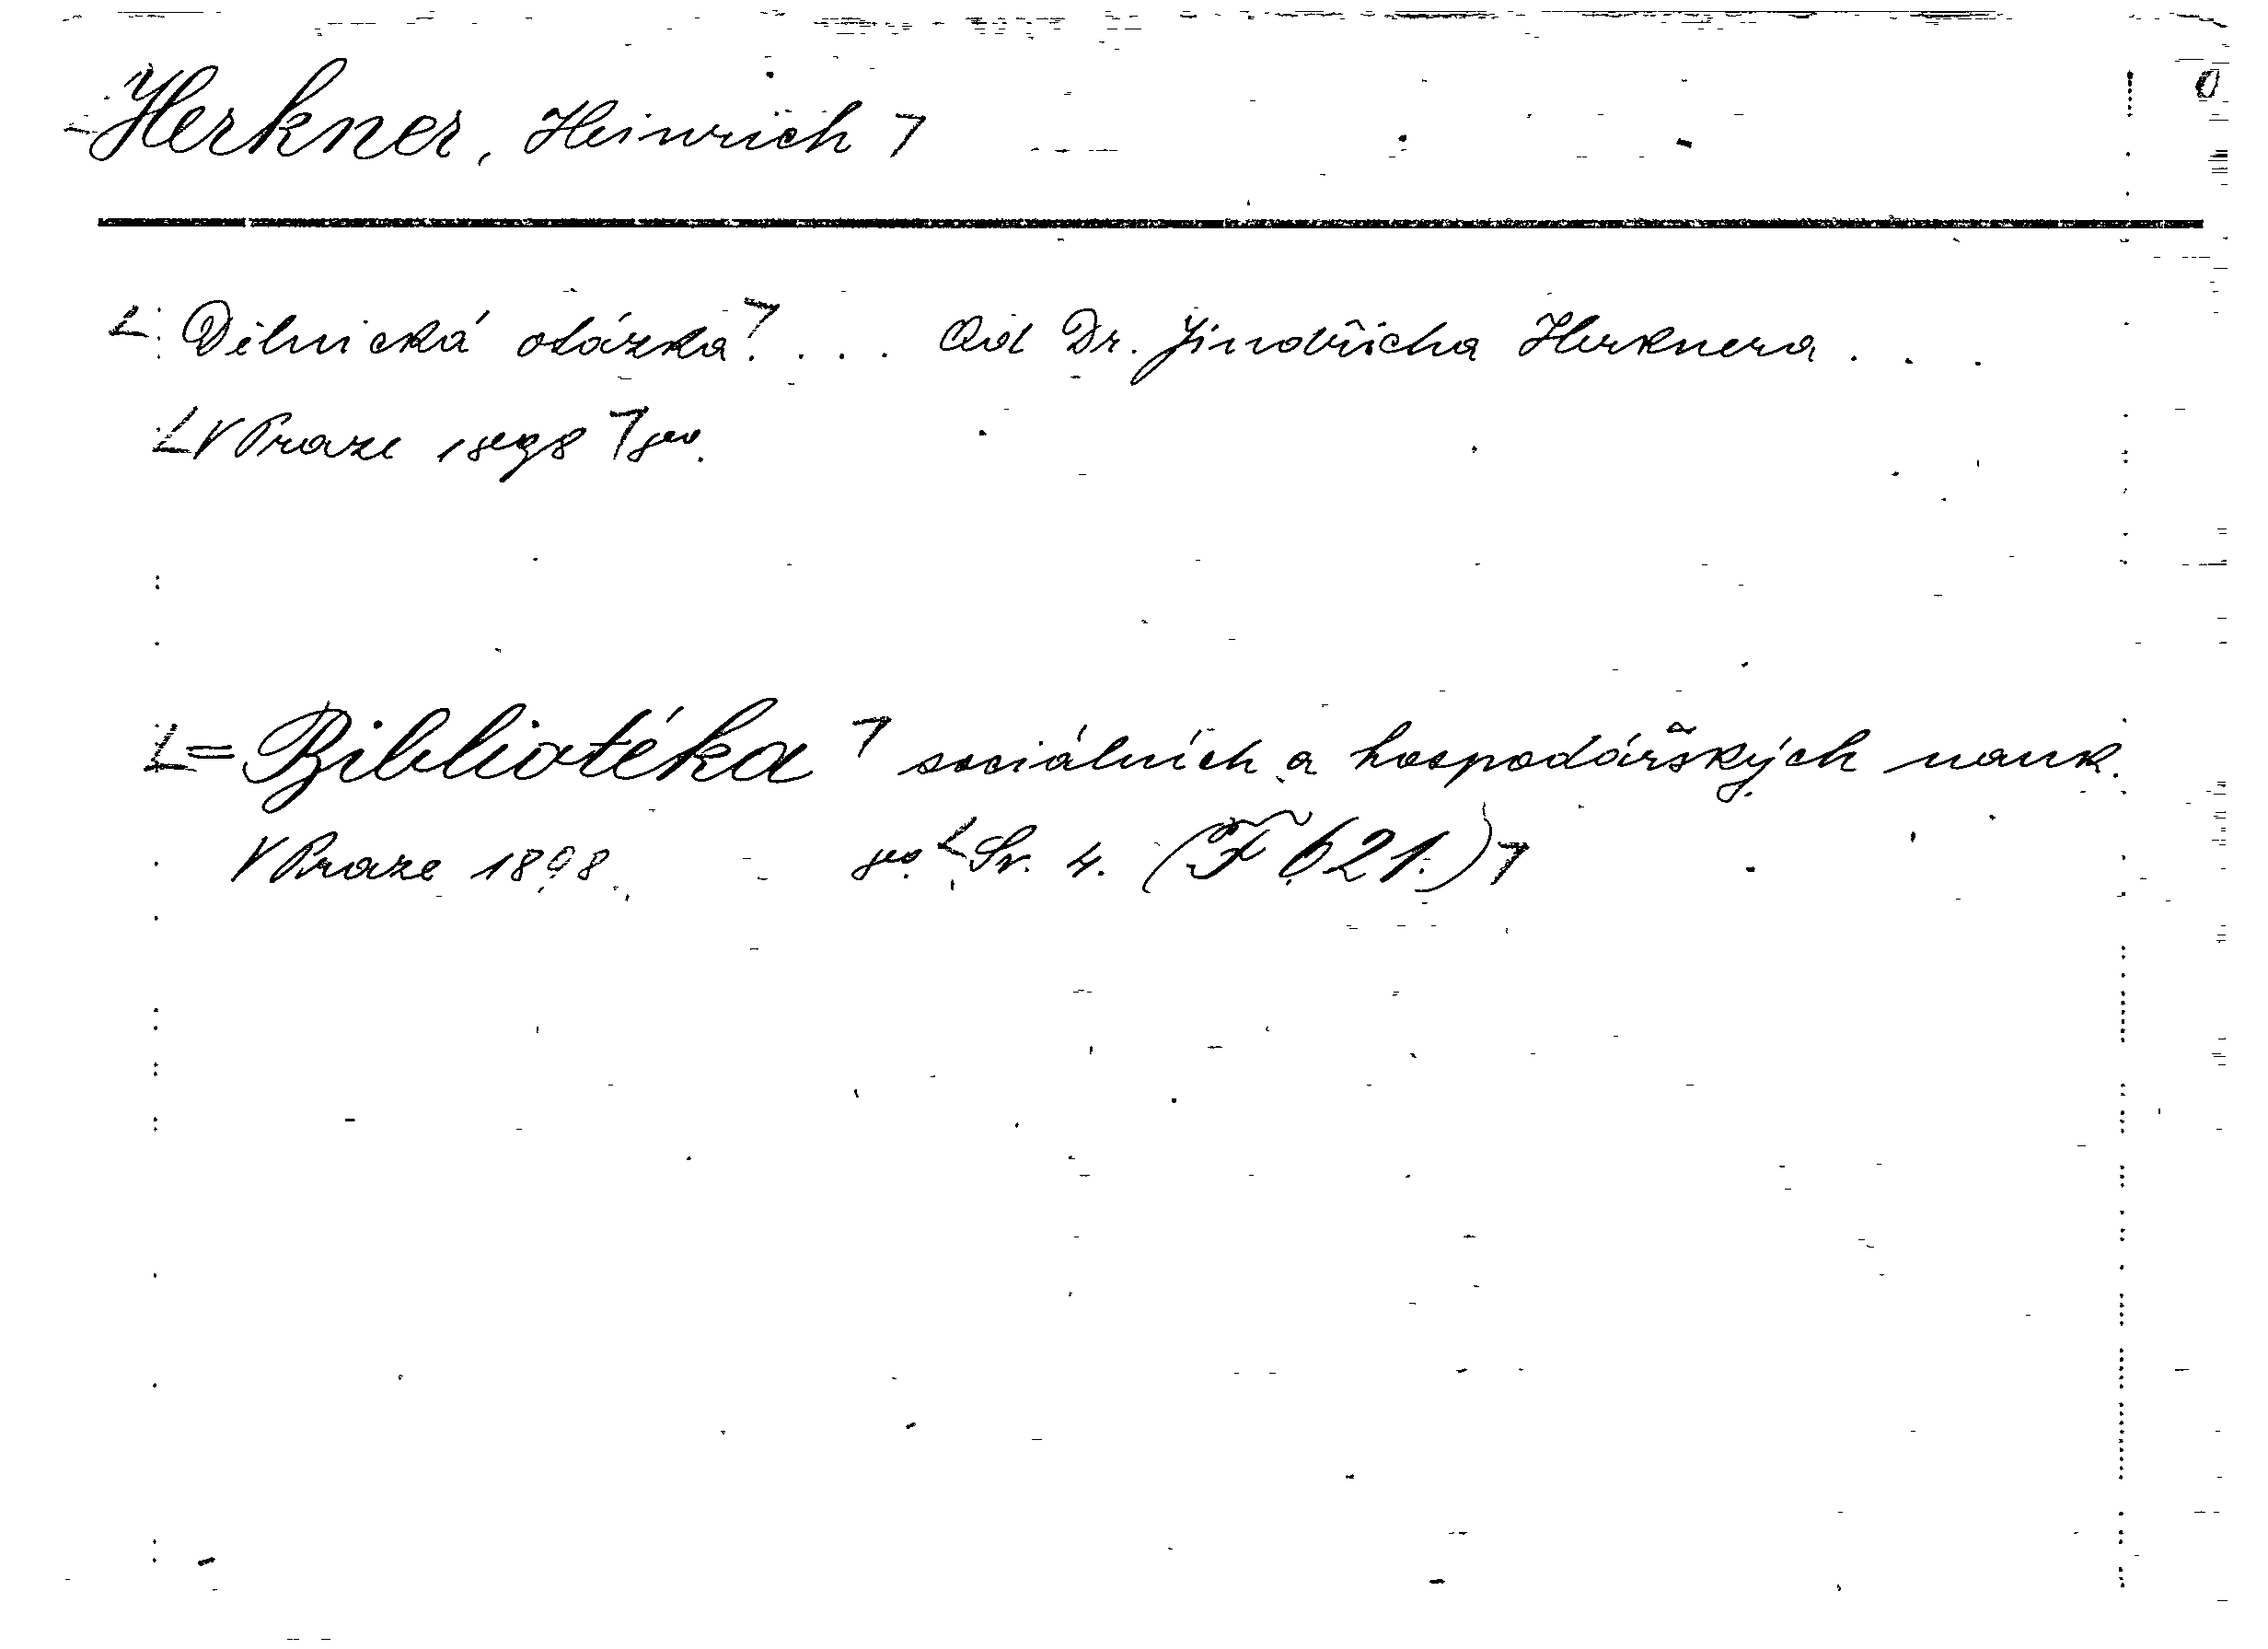 Herkner, Heinrich
Dělnická otázka. ... Od Dr. Jindřicha Herknera ...
V Praze 1898 8°.
= Bibliotéka sociálních a hospodářských nauk.
V Praze 1898. 8°. Sv. 4. (F 621.)